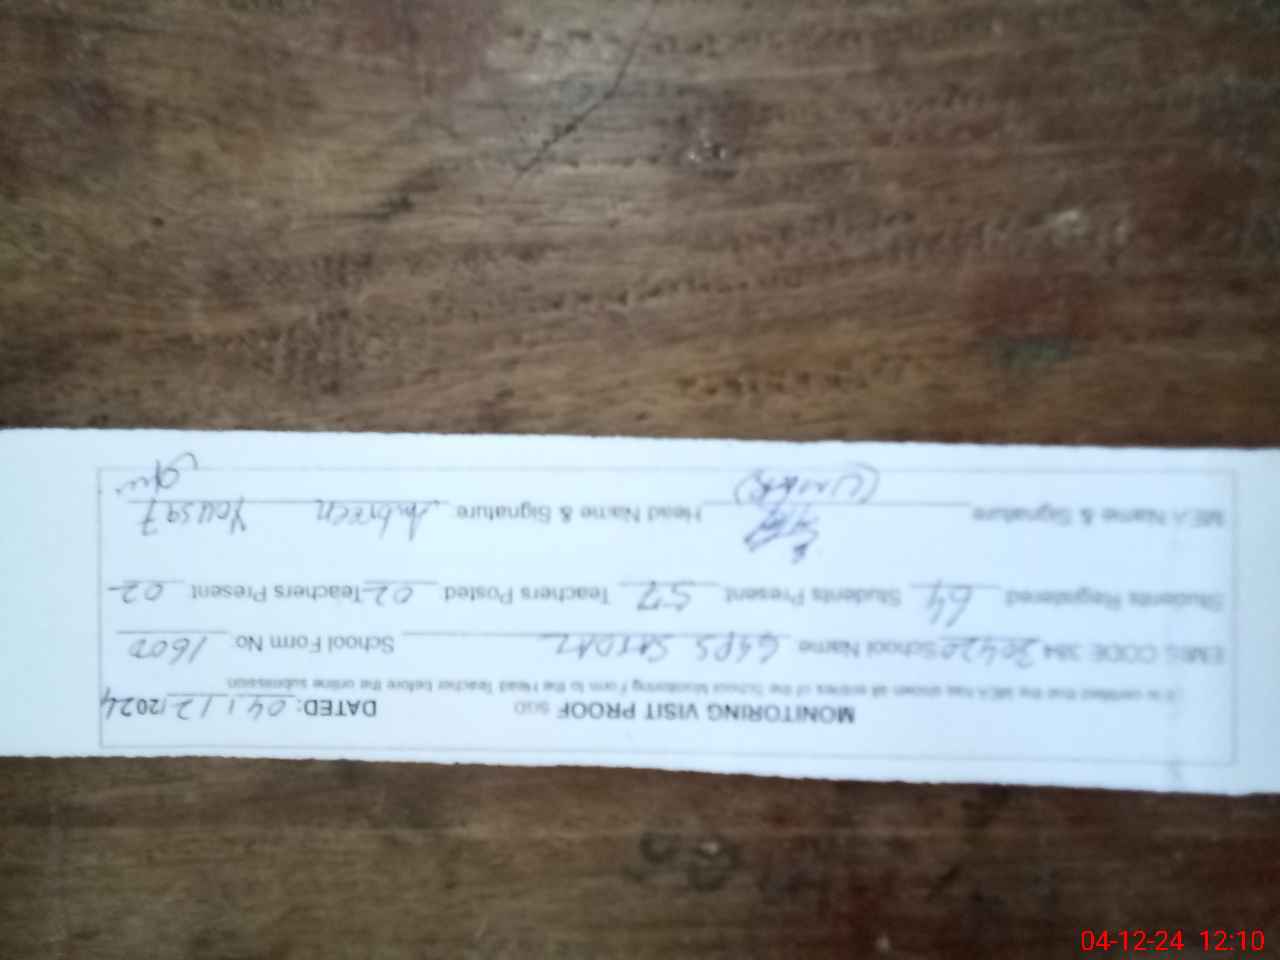 MONITORING VISIT PROOF SGD DATED: 04/12/2024
It is certified that the MEA has shown all entries of the School Monitoring Form to the Head Teacher before the online submission
EMIS CODE 384 20420 School Name: GGPS School Form No: 1600
Students Registered 64 Students Present: 57 Teachers Posted: 02 Teachers Present: 02
MEA Name & Signature (UMAR) Head Name & Signature: Ambreen Yousaf
04-12-24 12:10